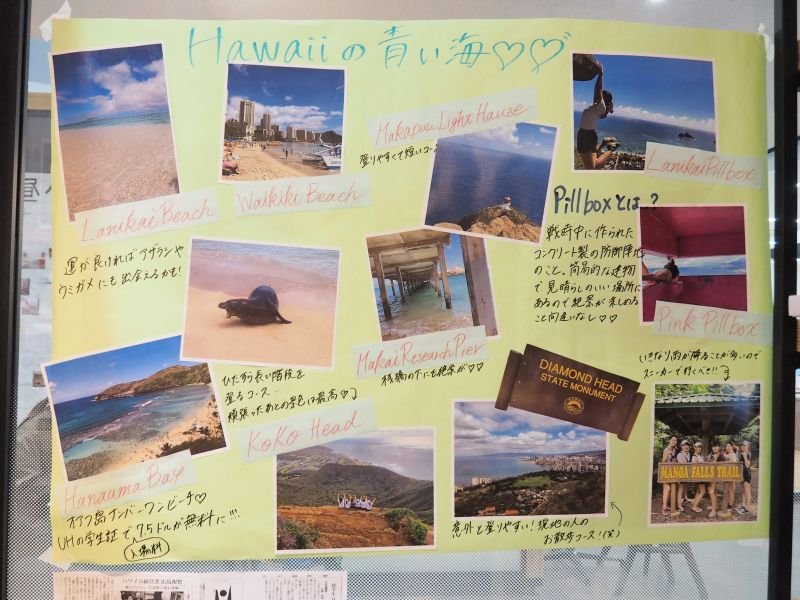 Hawaiiの青い海♡♡
Lanikai Beach
Waikiki Beach
Makapuu Light House
登りやすくて短いコース
Lanikai Pillbox
運が良ければアザラシや
ウミガメにも出会えるかも!
Pillboxとは..?
戦時中に作られた
コンクリート製の防御陣地
のこと。筒高的な建物
で見晴らしのいい場所に
あるので絶景が楽しめる
こと間違いなし♡♡
Pink Pillbox
Makai Research Pier
桟橋の下にも絶景が♡♡
いきなり雨が降ることが多いので
スニーカーで行くべき!!
ひたすら長い階段を
登るコース...
頑張ったあとの景色は最高♡
Koko Head
DIAMOND HEAD
STATE MONUMENT
MANOA FALLS TRAIL
Hanauma Bay
オアフ島ナンバーワンビーチ♡
UHの学生証で7.5ドルが無料に!!!
入場料
意外と登りやすい!現地の人の
お散歩コース!(笑)